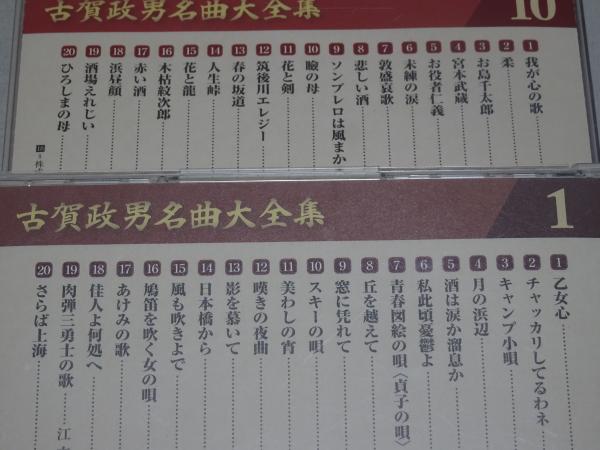 古賀政男名曲大全集
10
1 我が心の歌
2 柔
3 お島千太郎
4 宮本武蔵
5 お役者仁義
6 未練の涙
7 敦盛哀歌
8 悲しい酒
9 ソンブレロは風まか
10 瞼の母
11 花と剣
12 筑後川エレジー
13 春の坂道
14 人生峠
15 花と龍
16 木枯紋次郎
17 赤い酒
18 浜昼顔
19 酒場えれじい
20 ひろしまの母
古賀政男名曲大全集
1
1 乙女心
2 チャッカリしてるわネ
3 キャンプ小唄
4 月の浜辺
5 酒は涙か溜息か
6 私此頃憂鬱よ
7 青春図絵の唄〈貞子の唄〉
8 丘を越えて
9 窓に凭れて
10 スキーの唄
11 美わしの宵
12 嘆きの夜曲
13 影を慕いて
14 日本橋から
15 風も吹きよで
16 鳩笛を吹く女の唄
17 あけみの歌
18 佳人よ何処へ
19 肉弾三勇士の歌 江
20 さらば上海